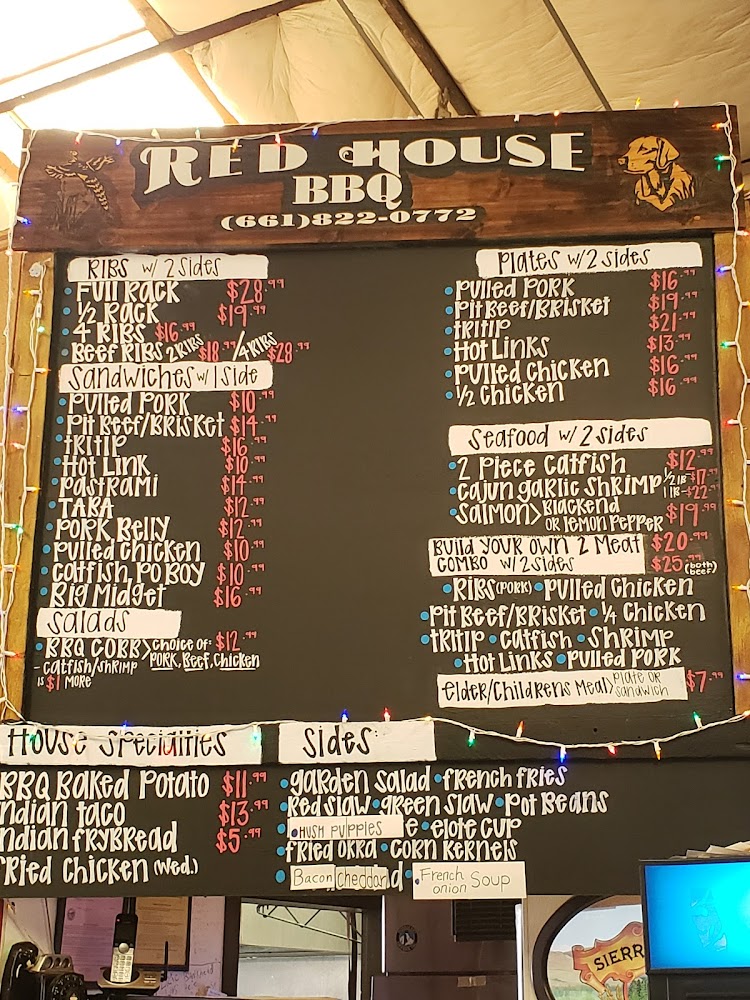 RED HOUSE
BBQ
(661)822-0772
RIBS w/ 2 sides
• Full Rack $28.99
• 1/2 Rack $19.99
• 4 Ribs $16.99
• Beef Ribs 2 Ribs $18.99 / 4 Ribs $28.99
Sandwiches w/ 1 side
• Pulled Pork $10.99
• Pit Beef/Brisket $14.99
• Tritip $16.99
• Hot Link $10.99
• Pastrami $14.99
• TABA $12.99
• Pork Belly $12.99
• Pulled Chicken $10.99
• Catfish Po Boy $10.99
• Big Midget $16.99
Salads
• BBQ COBB > Choice of: $12.99
Pork, Beef, Chicken
- Catfish/Shrimp
is $1 more
Plates w/ 2 sides
• Pulled Pork $16.99
• Pit Beef/Brisket $19.99
• Tritip $21.99
• Hot Links $13.99
• Pulled Chicken $16.99
• 1/2 Chicken $16.99
Seafood w/ 2 sides
• 2 Piece Catfish $12.99
• Cajun Garlic Shrimp 1/2 lb - $17.99
1 lb - $22.99
• Salmon > Blackend $19.99
or lemon pepper
Build your own 2 Meat $20.99
Combo w/ 2 sides $25.99 (both beef)
• Ribs (Pork) • Pulled Chicken
• Pit Beef/Brisket • 1/4 Chicken
• Tritip • Catfish • Shrimp
• Hot Links • Pulled Pork
Elder/Childrens Meal > Plate or sandwich $7.99
House Specialties
BBQ Baked Potato $11.99
ndian Taco $13.99
ndian Frybread $5.99
Fried Chicken (Wed.)
Sides:
• Garden Salad • French Fries
• Redslaw • Green Slaw • Pot Beans
• Hush Puppies e • Elote Cup
• Fried Okra • Corn Kernels
• Bacon Cheddar d • French onion Soup
SIERR